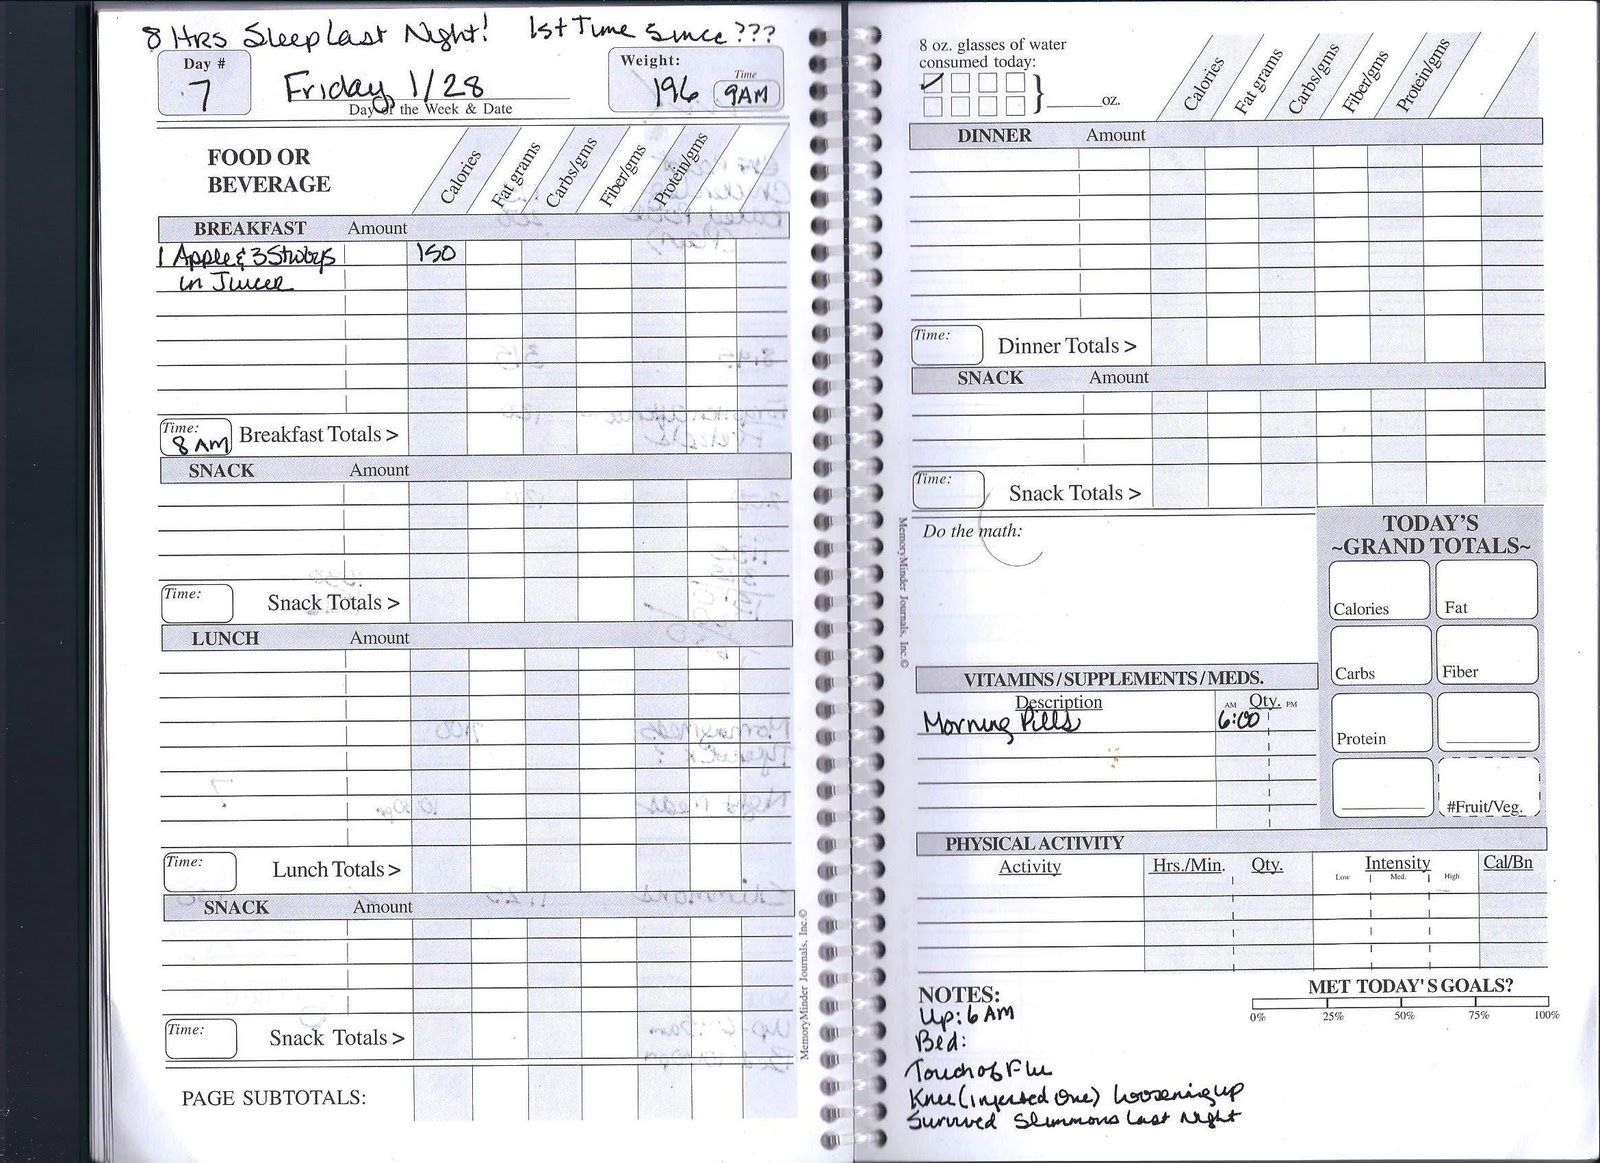 8 Hrs Sleep Last Night! 1st Time Since ???
Day #
7
Friday 1/28
Day of the Week & Date
Weight:
196
Time
9AM
FOOD OR
BEVERAGE
Calories
Fat grams
Carbs/gms
Fiber/gms
Protein/gms
BREAKFAST Amount
1 Apple & 3 Strwbys 150
in Juicer
Time:
8 AM
Breakfast Totals >
SNACK Amount
Time:
Snack Totals >
LUNCH Amount
Time:
Lunch Totals >
SNACK Amount
Time:
Snack Totals >
PAGE SUBTOTALS:
MemoryMinder Journals, Inc.©
8 oz. glasses of water
consumed today:
oz.
Calories
Fat grams
Carbs/gms
Fiber/gms
Protein/gms
DINNER Amount
Time:
Dinner Totals >
SNACK Amount
Time:
Snack Totals >
MemoryMinder Journals, Inc.©
Do the math:
TODAY'S
~GRAND TOTALS~
Calories
Fat
Carbs
Fiber
Protein
#Fruit/Veg.
VITAMINS/SUPPLEMENTS/MEDS.
Description AM Qty. PM
Morning Pills 6:00
PHYSICAL ACTIVITY
Activity Hrs./Min. Qty. Intensity Cal/Bn
Low Med. High
MET TODAY'S GOALS?
0% 25% 50% 75% 100%
NOTES:
Up: 6 AM
Bed:
Touch of Flu
Knee (injected one) Loosening up
Survived Slimmons Last Night